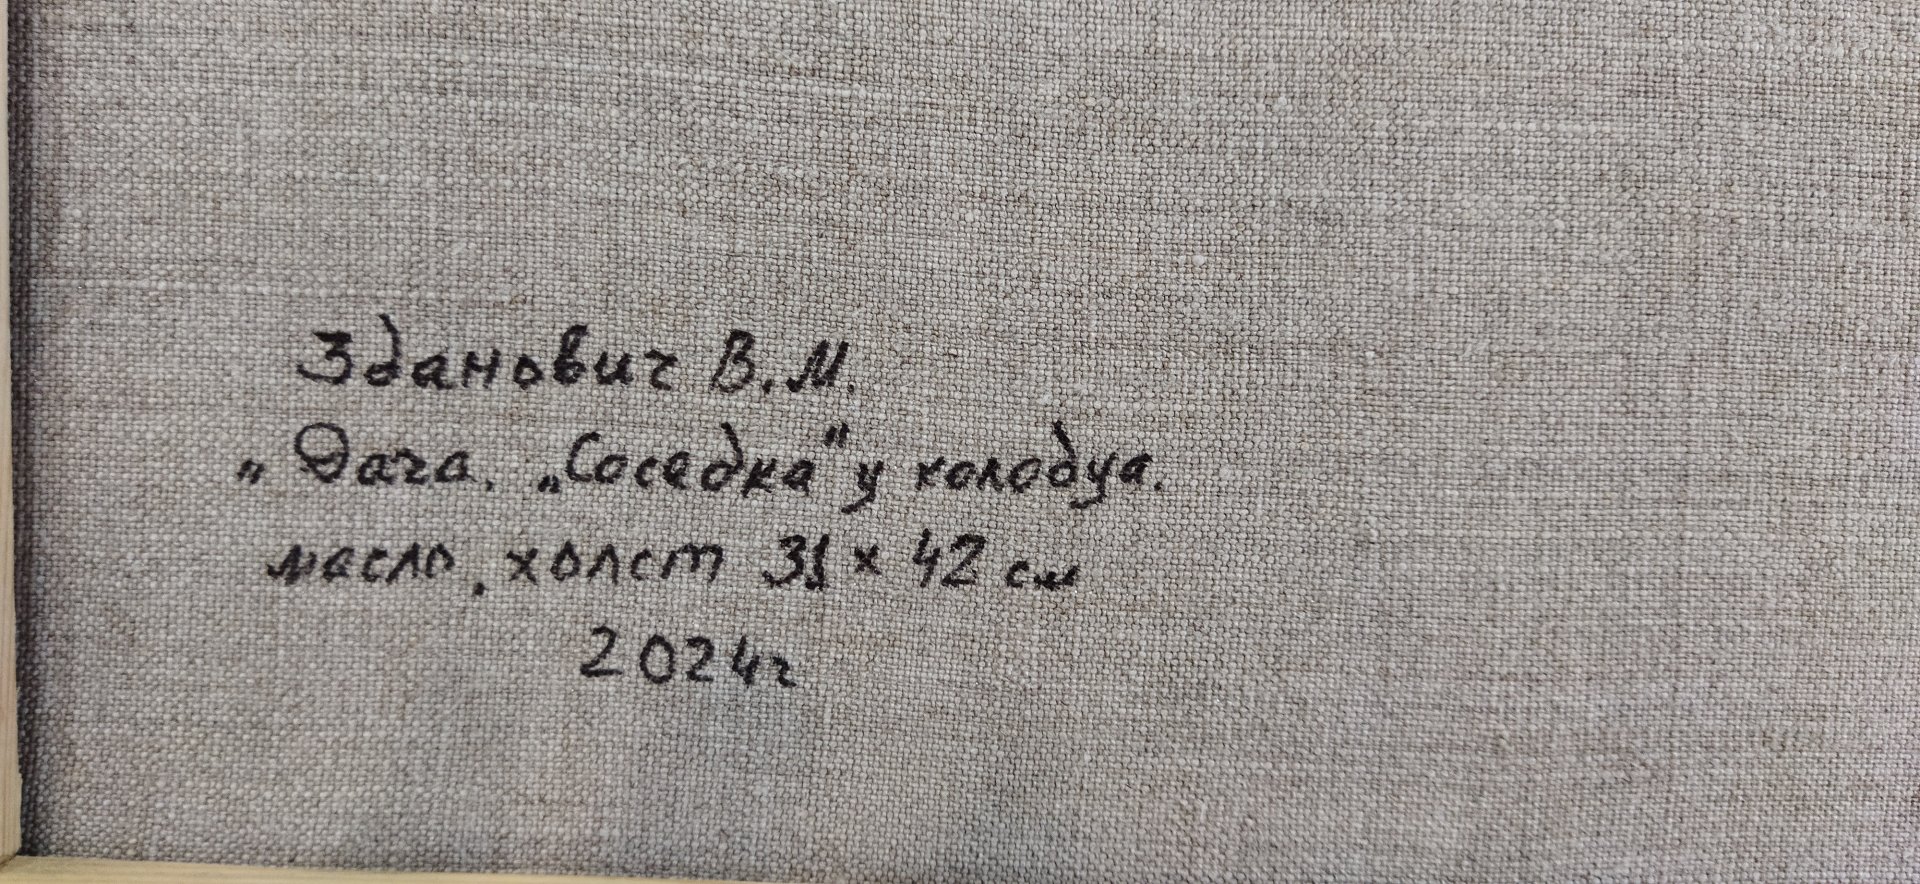 Зданович В.М.
„Дача. „Соседка" у колодца.
масло, холст 31 x 42 см
2024г